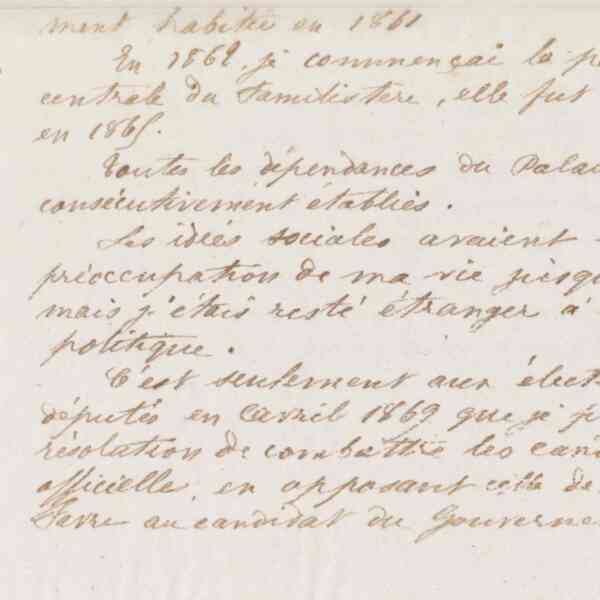 ment habitée en 1861
En 1862, je commençai la p
centrale du Familistère, elle fut
en 1865.
Toutes les dépendances du Palai
consécutivement établies.
Les idées sociales avaient
préoccupation de ma vie jusqu
mais j'étais resté étranger à
politique.
C'est seulement aux élect
députés en avril 1869 que je p
résolution de combattre les can
officielle, en opposant celle de
Favre au candidat du Gouverne